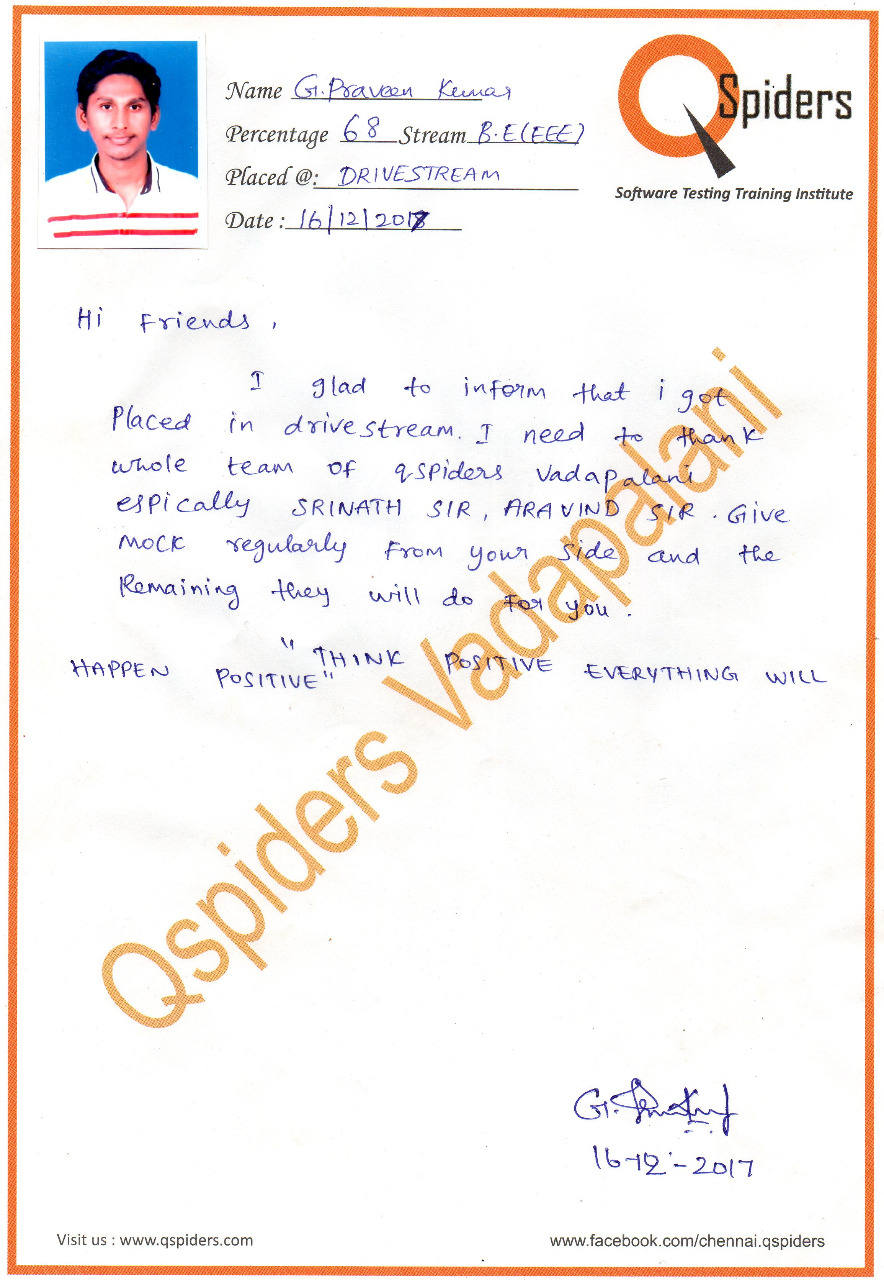 Name G. Praveen Kumar
Percentage 68 Stream B.E(EEE)
Placed @: DRIVESTREAM
Date : 16/12/2017
QSpiders
Software Testing Training Institute
Hi Friends,
I glad to inform that i got
Placed in drivestream. I need to thank
whole team of qspiders vadapalani
espically SRINATH SIR, ARAVIND SIR. Give
MOCK regularly From your side and the
Remaining they will do for you.
" THINK POSITIVE EVERYTHING WILL
HAPPEN POSITIVE"
Qspiders Vadapalani
G.
16-12-2017
Visit us : www.qspiders.com
www.facebook.com/chennai.qspiders